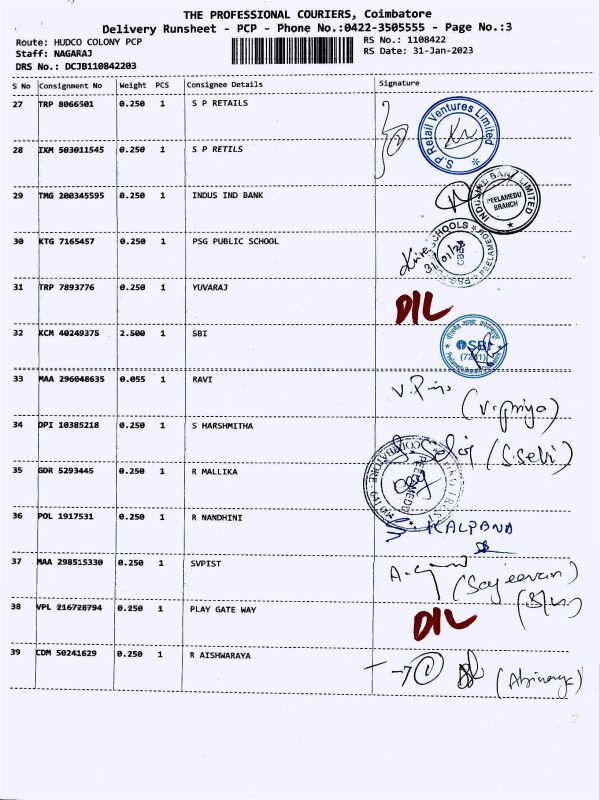 THE PROFESSIONAL COURIERS, Coimbatore
Delivery Runsheet - PCP - Phone No.:0422-3505555 - Page No.:3
Route: HUDCO COLONY PCP RS No.: 1108422
Staff: NAGARAJ RS Date: 31-Jan-2023
DRS No.: DCJB110842203
S No Consignment No Weight PCS Consignee Details Signature
27 TRP 8066501 0.250 1 S P RETAILS
S.P Retail Ventures Limited
28 IXM 503011545 0.250 1 S P RETILS
29 TMG 200345595 0.250 1 INDUS IND BANK
INDUSIND BANK LIMITED
PEELAMEDU
BRANCH
30 KTG 7165457 0.250 1 PSG PUBLIC SCHOOL
SCHOOLS PEELAMEDU PSG
CBE
31/01/23
31 TRP 7893776 0.250 1 YUVARAJ
DIL
32 KCM 40249375 2.500 1 SBI
SBI
(7241)
33 MAA 296048635 0.055 1 RAVI
(V.Priya)
34 DPI 10385218 0.250 1 S HARSHMITHA
S. Selvi (S.Selvi)
35 GDR 5293445 0.250 1 R MALLIKA
TRUST COIMBATORE
PEELAMEDU
36 POL 1917531 0.250 1 R NANDHINI
S KALPANA
37 MAA 298515330 0.250 1 SVPIST
(Sajeevan)
38 VPL 216728794 0.250 1 PLAY GATE WAY
DIL
39 CDM 50241629 0.250 1 R AISHWARAYA
(Abinaya)